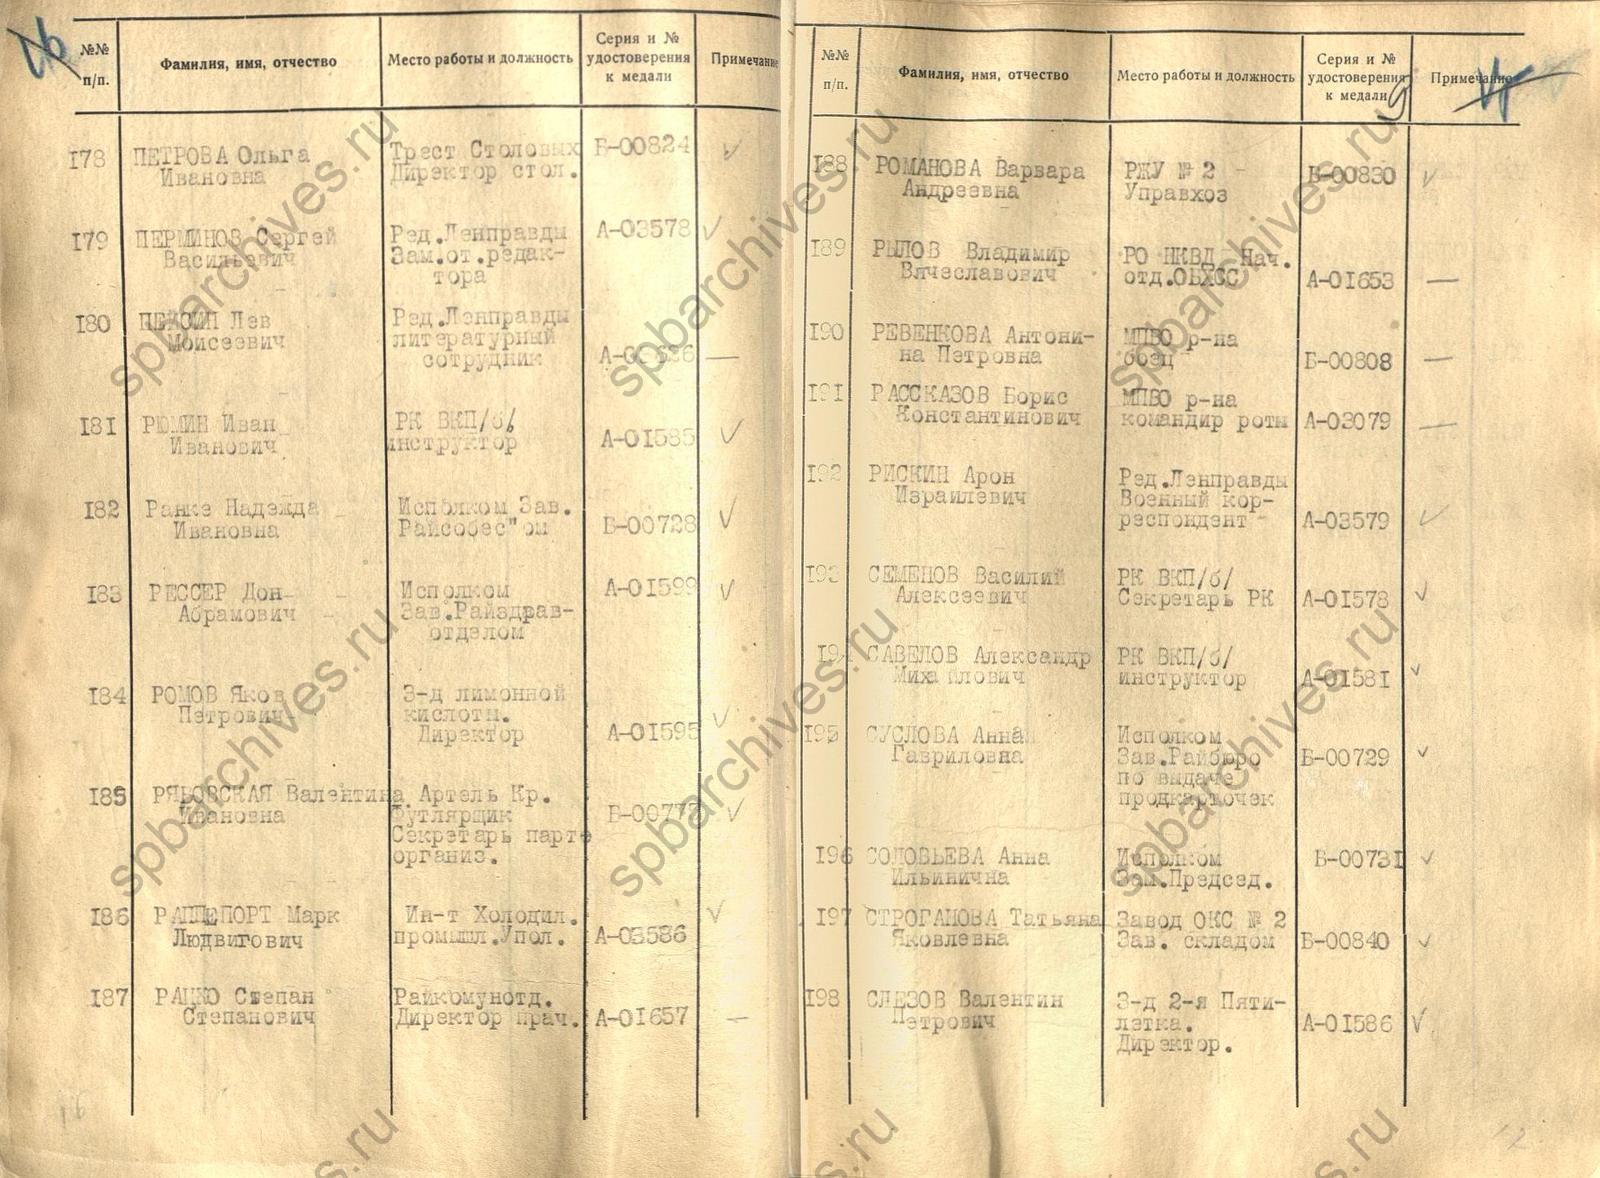 №№ п/п.
Фамилия, имя, отчество
Место работы и должность
Серия и № удостоверения к медали
Примечание
178 ПЕТРОВА Ольга Трест Столовых Б-00824
Ивановна Директор стол.
179 ПЕРМИНОВ Сергей Ред.Ленправды А-03578
Васильевич Зам.от.редак-
тора
180 Лев Ред.Ленправды
Моисеевич литературный
сотрудник
181 РЮМИН Иван РК ВКП/б/
Иванович инструктор А-01585
182 Ранке Надежда Исполком Зав.
Ивановна Райсобес"ом Б-00728
183 РЕССЕР Дон Исполком А-01599
Абрамович Зав.Райздрав-
отделом
184 РОМОВ Яков З-д лимонной
Петрович кислоты.
Директор А-01595
185 РЯБОВСКАЯ Валентина Артель Кр.
Ивановна Футлярщик
Секретарь парт
организ.
186 РАППЕПОРТ Марк Ин-т Холодил.
Людвигович промышл.Упол. А-03586
187 РАЦКО Степан Райкомунотд.
Степанович Директор прач. А-01657
№№ п/п.
Фамилия, имя, отчество
Место работы и должность
Серия и № удостоверения к медали
Примечание
188 РОМАНОВА Варвара РЖУ № 2 Б-00830
Андреевна Управхоз
189 РЫЛОВ Владимир РО НКВД Нач.
Вячеславович отд.ОБХСС А-01653
190 РЕВЕНКОВА Антони- МПВО р-на
на Петровна боец Б-00808
191 РАССКАЗОВ Борис МПВО р-на
Константинович командир роты А-03079
192 РИСКИН Арон Ред.Ленправды
Израилевич Военный кор-
респондент А-03579
193 СЕМЕНОВ Василий РК ВКП/б/
Алексеевич Секретарь РК А-01578
194 САВЕЛОВ Александр РК ВКП/б/
Михайлович инструктор А-01581
195 СУСЛОВА Анна Исполком
Гавриловна Зав.Райбюро Б-00729
по выдаче
продкарточек
196 СОЛОВЬЕВА Анна Исполком Б-00731
Ильинична Зам.Председ.
197 СТРОГАНОВА Татьяна Завод ОКС № 2
Яковлевна Зав. складом Б-00840
198 СЛЕЗОВ Валентин З-д 2-я Пяти-
Петрович летка. А-01586
Директор.
spbarchives.ru
spbarchives.ru
spbarchives.ru
spbarchives.ru
spbarchives.ru
spbarchives.ru